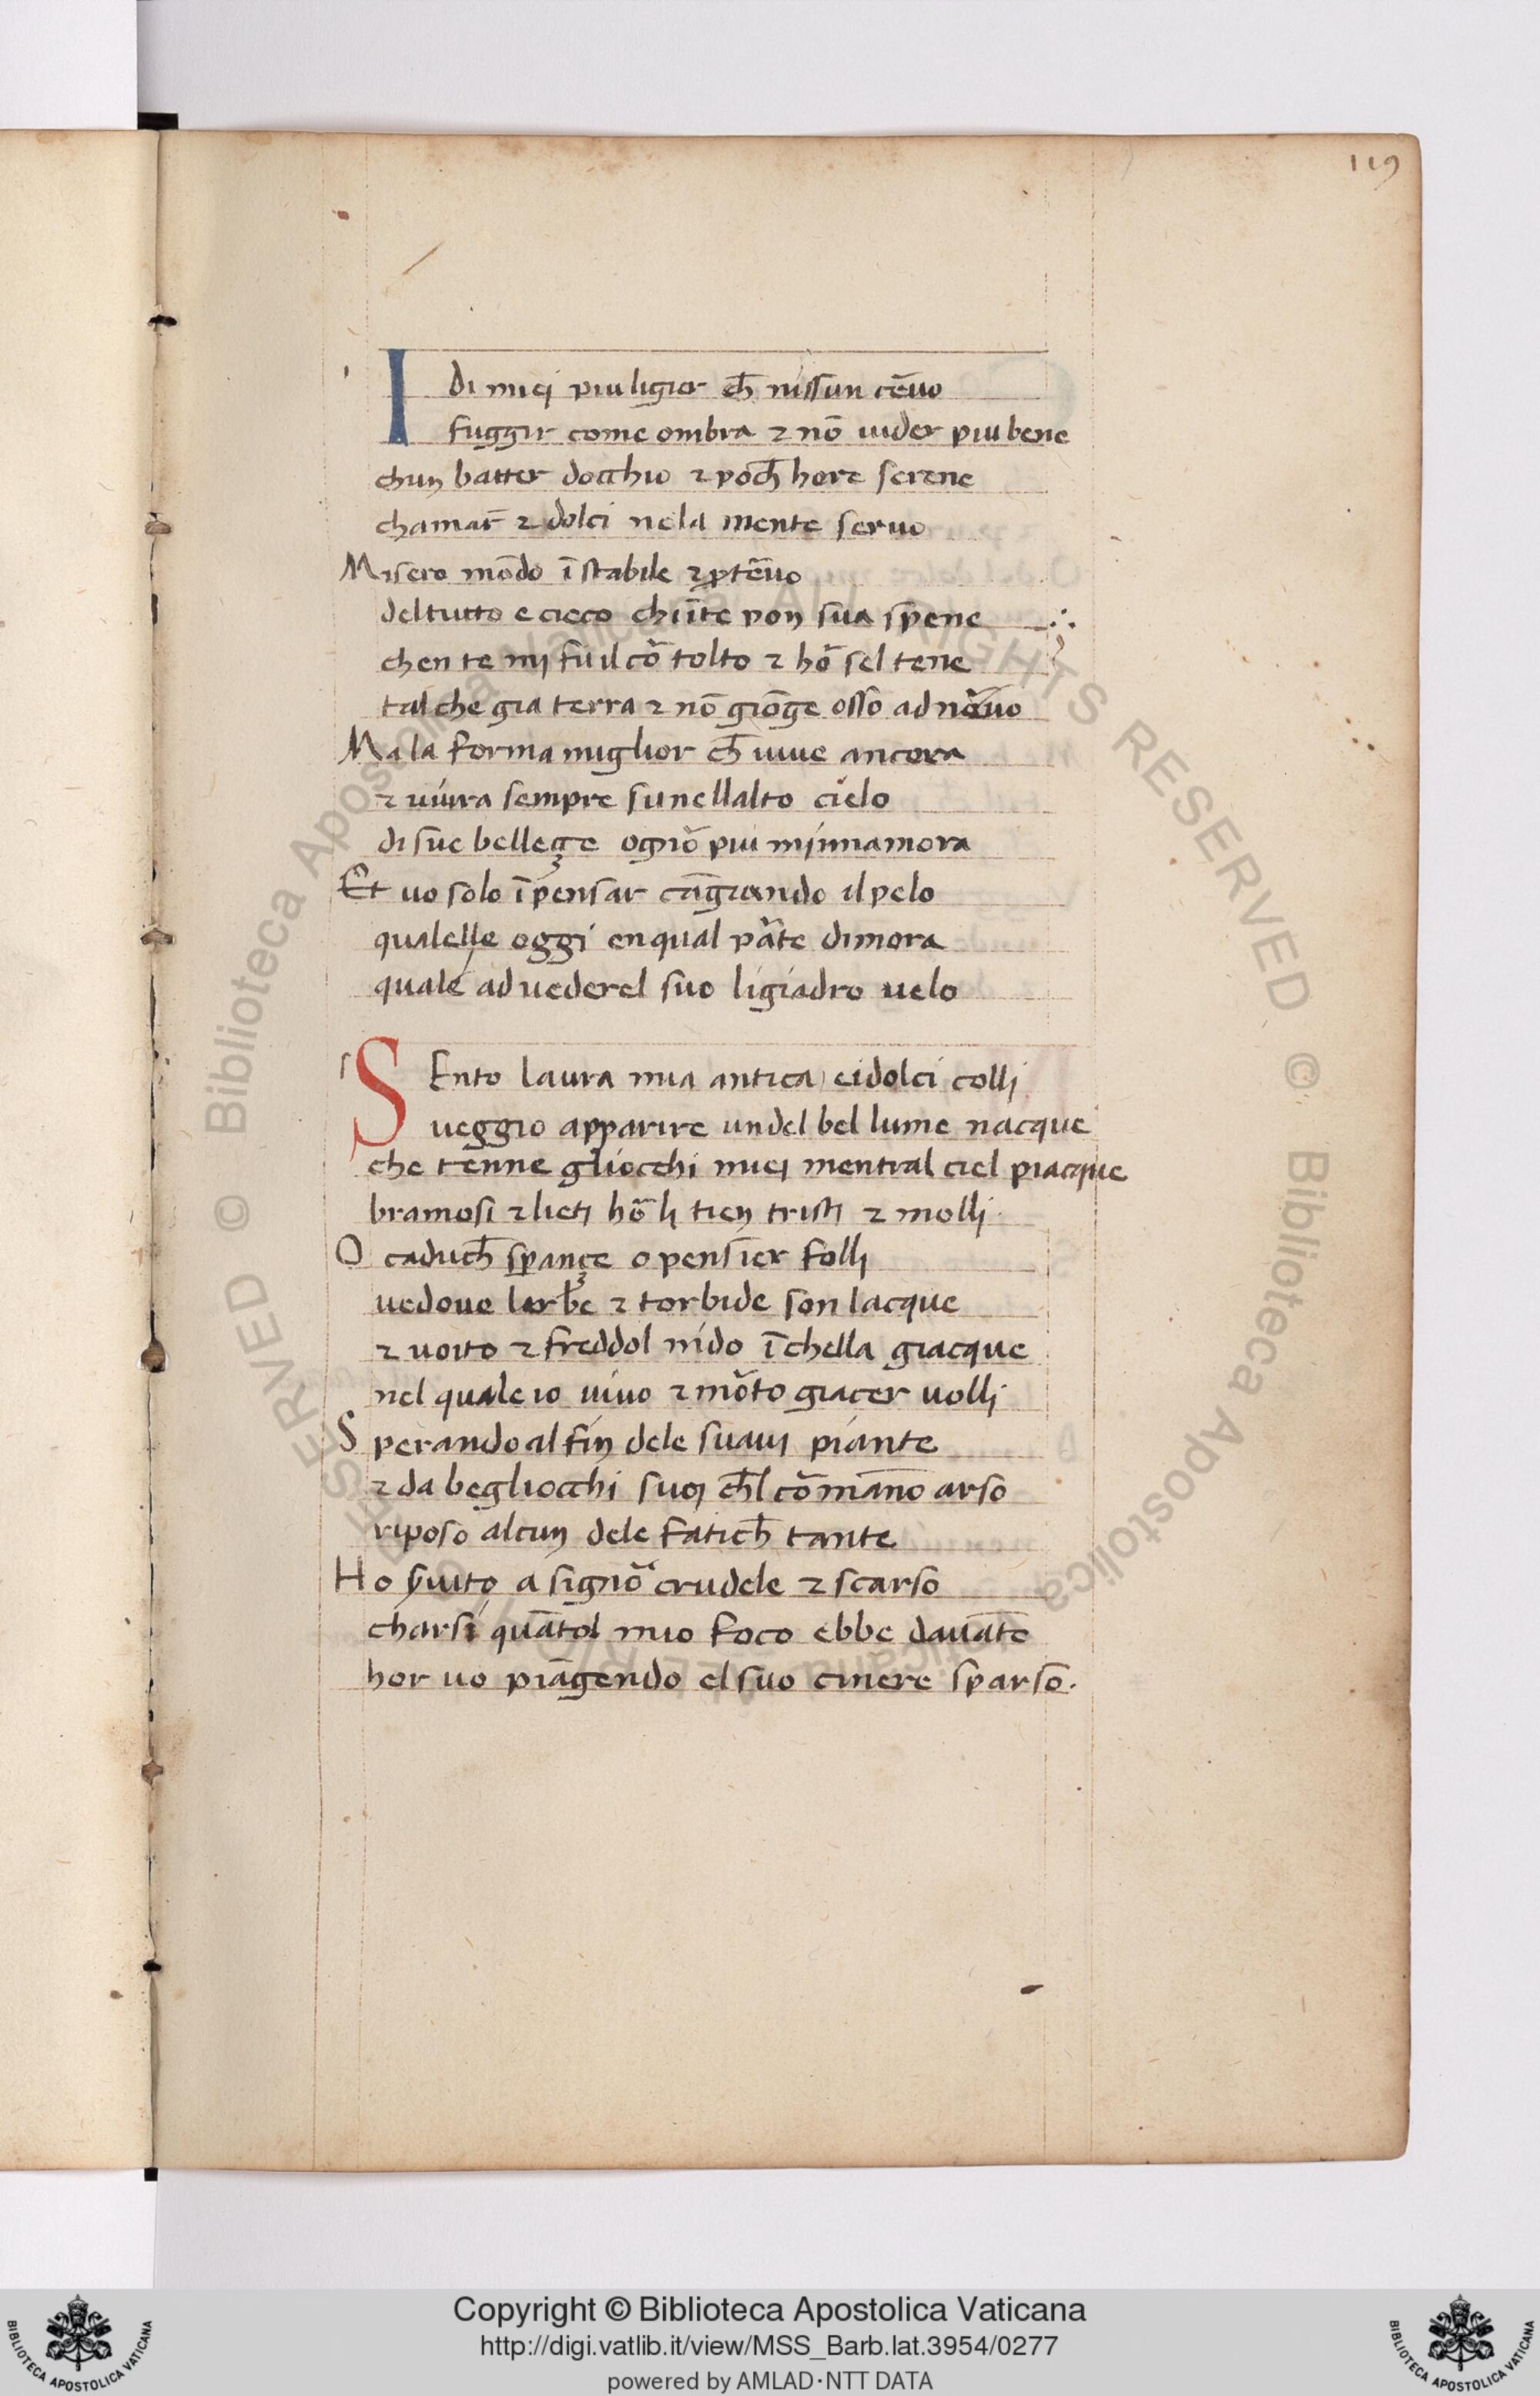 119
I di miei piu ligier ch̄ nissun cēuo
fuggir come ombra ⁊ nō uider piu bene
chun batter docchio ⁊ poch̄ hore serene
chamar̄ ⁊ dolci nela mente seruo
Misero mōdo ī stabile ⁊ ꝓtēuo
del tutto e cieco chī te pon sua spene
chen te mi fu il cō tolto ⁊ hō sel tene
tal che gia terra ⁊ nō giōge osso ad nōuo
Ma la forma miglior ch̄ uiue ancora
⁊ uiura sempre su nellalto cielo
di sue bellege ogniō piu minnamora
Et uo solo ī pensar cāgiando il pelo
qualelle oggi en qual pāte dimora
quale ad uederel suo ligiadro uelo
SEnto laura mia antica ei dolci colli
ueggio apparire undel bel lume nacque
che tenne gliocchi miei mentral ciel piacque
bramosi ⁊ lieti hō li tien tristi ⁊ molli
O caduch̄ sꝑançe o pensier folli
uedoue lerbe ⁊ torbide son lacque
⁊ uoito ⁊ freddol nido ī chella giacque
nel quale io uiuo ⁊ mōto giacer uolli
Sperando al fin dele suaui piante
⁊ da begliocchi suoi ch̄l cō māno arso
riposo alcun dele fatich̄ tante
Ho s̄uito a signiō crudele ⁊ scarso
charsi quātol mio foco ebbe dauāte
hor uo piāgendo el suo cinere sparso.
© Biblioteca Apostolica Vaticana ALL RIGHTS RESERVED © Biblioteca Apostolica Vaticana ALL RIGHTS RESERVED
Copyright © Biblioteca Apostolica Vaticana
http://digi.vatlib.it/view/MSS_Barb.lat.3954/0277
powered by AMLAD·NTT DATA
BIBLIOTECA APOSTOLICA VATICANA
BIBLIOTECA APOSTOLICA VATICANA